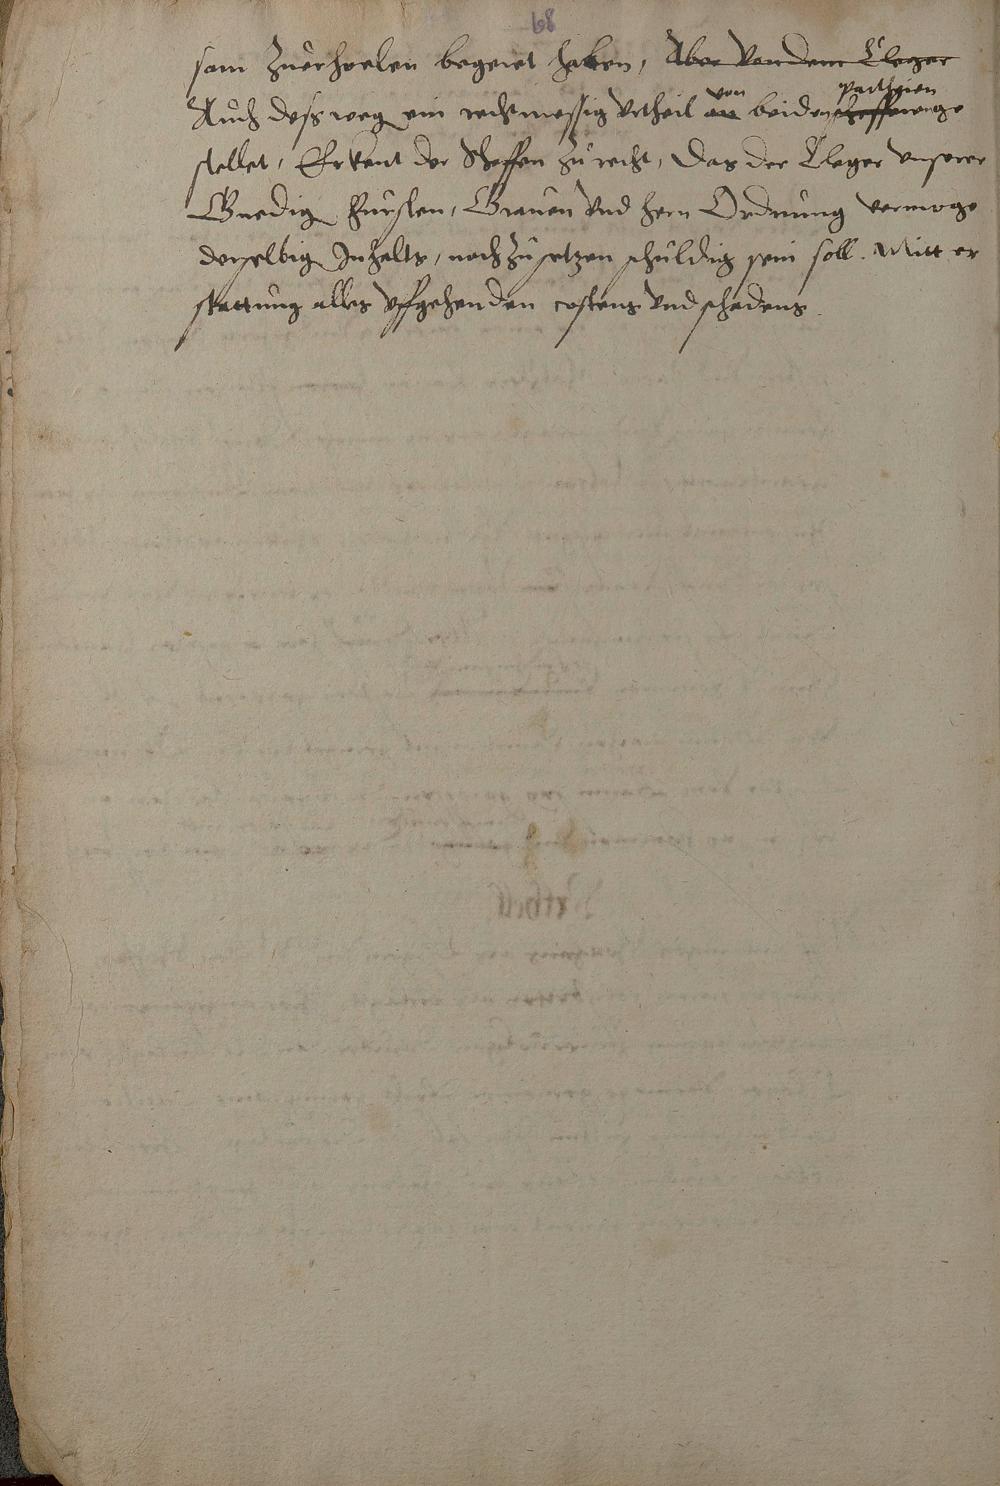 68
sam Zuerhoelen begeret haben, Aber von dem Cleger
Auch dess weg ein rechtmessig Urtheil an von beiden scheffen partheien ge
stellet, Erkent der Scheffen zu recht, Das der Cleger unserer
Gnedig Fursten, Grauen Vnd hern Ordnung vermoge
derselbig Inhalts, nach zu setzen schuldig sein soll. Mitt er
stattung alles Uffgehenden costens Vnd schadens.